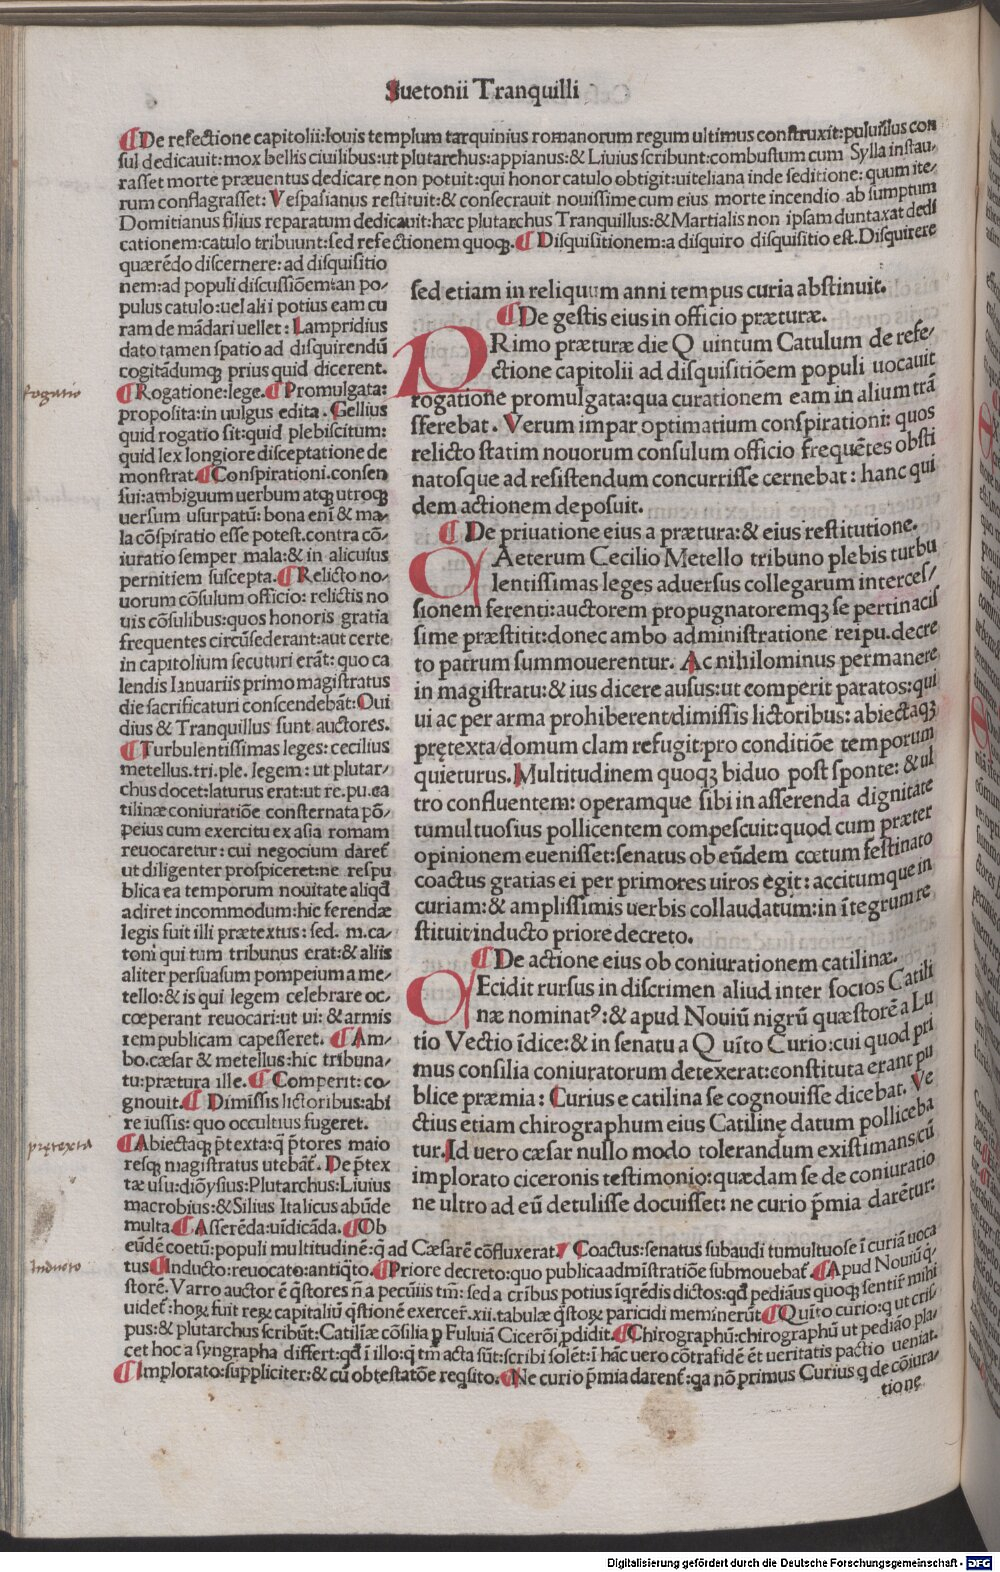 Suetonii Tranquilli
¶ De refectione capitolii: Iouis templum tarquinius romanorum regum ultimus construxit: puluillus con
sul dedicauit: mox bellis ciuilibus: ut plutarchus: appianus: & Liuius scribunt: combustum cum Sylla instau-
rasset morte præuentus dedicare non potuit: qui honor catulo obtigit: uiteliana inde seditione: quum ite-
rum conflagrasset: Vespasianus restituit: & consecrauit nouissime cum eius morte incendio absumptum
Domitianus filius reparatum dedicauit: hæc plutarchus Tranquillus: & Martialis non ipsam duntaxat dedi
cationem: catulo tribuunt: sed refectionem quoqȝ. ¶ Disquisitionem: a disquiro disquisitio est. Disquirere
quærēdo discernere: ad disquisitio
nem: ad populi discussiōem: an po-
pulus catulo: uel alii potius eam cu
ram de mādari uellet: Lampridius
dato tamen spatio ad disquirendū
cogitādumqȝ prius quid dicerent.
¶ Rogatione: lege. ¶ Promulgata:
proposita: in uulgus edita. Gellius
quid rogatio sit: quid plebiscitum:
quid lex longiore disceptatione de
monstrat. ¶ Conspirationi. consen
sui: ambiguum uerbum atqȝ utroqȝ
uersum usurpatū: bona eni & ma-
la cōspiratio esse potest. contra cō-
iuratio semper mala: & in alicuius
pernitiem suscepta. ¶ Relicto no-
uorum cōsulum officio: relictis no
uis cōsulibus: quos honoris gratia
frequentes circūsederant: aut certe
in capitolium secuturi erāt: quo ca
lendis Ianuariis primo magistratus
die sacrificaturi conscendebāt: Oui
dius & Tranquillus sunt auctores.
¶ Turbulentissimas leges: cecilius
metellus. tri. ple. legem: ut plutar-
chus docet: laturus erat: ut re. pu. ca
tilinæ coniuratiōe consternata pō-
peius cum exercitu ex asia romam
reuocaretur: cui negocium daret̄
ut diligenter prospiceret: ne respu
blica ea temporum nouitate aliqd
adiret incommodum: hic ferendæ
legis fuit illi prætextus: sed. m. ca-
toni qui tum tribunus erat: & aliis
aliter persuasum pompeium a me-
tello: & is qui legem celebrare oc-
cœperant reuocari: ut ui: & armis
rempublicam capesseret. ¶ Am-
bo. cæsar & metellus: hic tribuna-
tu: prætura ille. ¶ Comperit: co-
gnouit. ¶ Dimissis lictoribus: abi
re iussis: quo occultius fugeret.
¶ Abiectaqȝ p̄texta: q̄ p̄tores maio
resqȝ magistratus utebāt̄. De p̄tex
tæ usu: diōysius: Plutarchus: Liuius
macrobius: & Silius Italicus abūde
multa. ¶ Asserēda: uīdicāda. ¶ Ob
eūdē coetū: populi multitudinē: q̄ ad Cæsarē cōfluxerat. ¶ Coactus: senatus subaudi tumultuose ī curiā uoca
tus ¶ Inducto: reuocato: antiq̄to. ¶ Priore decreto: quo publica admīstratiōe submouebat̄. ¶ Apud Nouiū q̄-
storē. Varro auctor ē q̄stores n̄ a pecūiis tm̄: sed a crībus potius īqrēdis dictos: qd pediāus quoqȝ sentir̄ mihi
uidet̄: hoꝝ fuit reꝝ capitaliū q̄stionē exercer̄. xii. tabulæ q̄stoꝝ paricidi meminerūt ¶ Quīto curio: q ut crīs-
pus: & plutarchus scribūt: Catilīæ cōsilia ꝑ Fuluiā Cicerōi ꝓdidit. ¶ Chirographū: chirographū ut pediāo pla-
cet hoc a syngrapha differt: qd ī illo: q̄ tm̄ acta sūt: scribi solēt: ī hāc uero cōtra fidē ēt ueritatis pactio ueniat.
¶ Implorato: suppliciter: & cū obtestatōe reqsito. ¶ Ne curio p̄mia darent̄: qa nō primus Curius q de cōiura-
tione
sed etiam in reliquum anni tempus curia abstinuit.
¶ De gestis eius in officio præturæ.
PRimo præturæ die Q uintum Catulum de refe-
ctione capitolii ad disquisitiōem populi uocauit
rogatione promulgata: qua curationem eam in alium trā
sferebat. Verum impar optimatium conspirationi: quos
relicto statim nouorum consulum officio frequētes obsti
natosque ad resistendum concurrisse cernebat: hanc qui
dem actionem deposuit.
¶ De priuatione eius a prætura: & eius restitutione.
CAeterum Cecilio Metello tribuno plebis turbu
lentissimas leges aduersus collegarum interces-
sionem ferenti: auctorem propugnatoremqȝ se pertinacis
sime præstitit: donec ambo administratione reipu. decre
to patrum summouerentur. Ac nihilominus permanere
in magistratu: & ius dicere ausus: ut comperit paratos: qui
ui ac per arma prohiberent: dimissis lictoribus: abiectaqȝ
prętexta: domum clam refugit: pro conditiōe temporum
quieturus. Multitudinem quoqȝ biduo post sponte: & ul
tro confluentem: operamque sibi in asserenda dignitate
tumultuosius pollicentem compescuit: quod cum præter
opinionem euenisset: senatus ob eūdem cœtum festinato
coactus gratias ei per primores uiros egit: accitumque in
curiam: & amplissimis uerbis collaudatum: in ītegrum re
stituit: inducto priore decreto.
¶ De actione eius ob coniurationem catilinæ.
REcidit rursus in discrimen aliud inter socios Catili
næ nominatꝰ: & apud Nouiū nigrū quæstorē a Lu
tio Vectio īdice: & in senatu a Q uīto Curio: cui quod pri
mus consilia coniuratorum detexerat: constituta erant pu
blice præmia: Curius e catilina se cognouisse dicebat. Ve
ctius etiam chirographum eius Catilinę datum polliceba
tur. Id uero cæsar nullo modo tolerandum existimans: cū
implorato ciceronis testimonio: quædam se de coniuratio
ne ultro ad eū detulisse docuisset: ne curio p̄mia darētur:
Rogatio
prętexta
Inducto
Digitalisierung gefördert durch die Deutsche Forschungsgemeinschaft - DFG